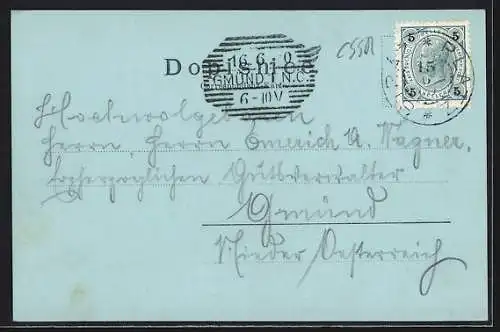 Dopisnice
16.6.0
GMÜND I N.Ö.
6-10V
5 5
5 5
Hochwolgeboren
Herrn, Herrn Emerich A. Wagner,
Gutsverwalter
Gmünd
Nieder Oesterreich